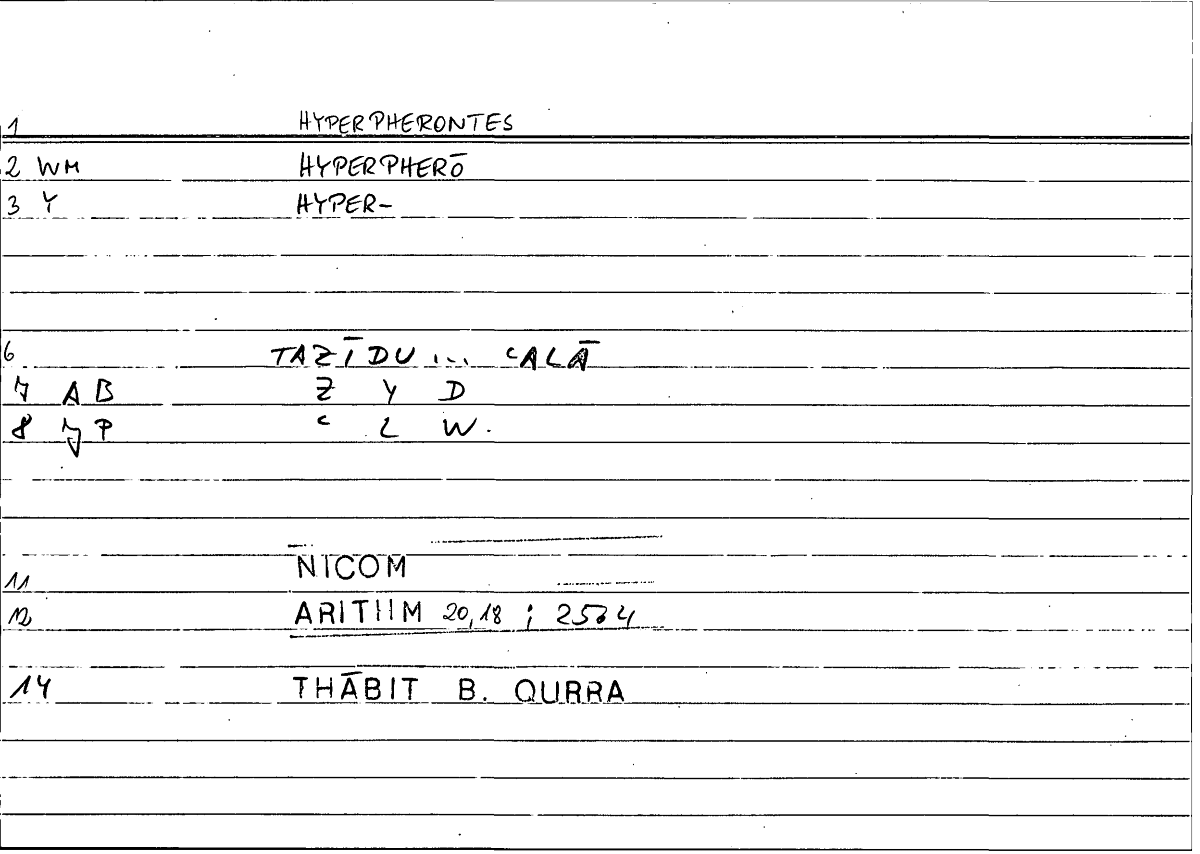 1 HYPERPHERONTES
2 WM HYPERPHERŌ
3 Y HYPER-
6 TAZĪDU ... ʿALĀ
7 AB Z Y D
8 JP ʿ L W.
11 NICOM
12 ARITHM 20,18 ;
14 THĀBIT B. QURRA